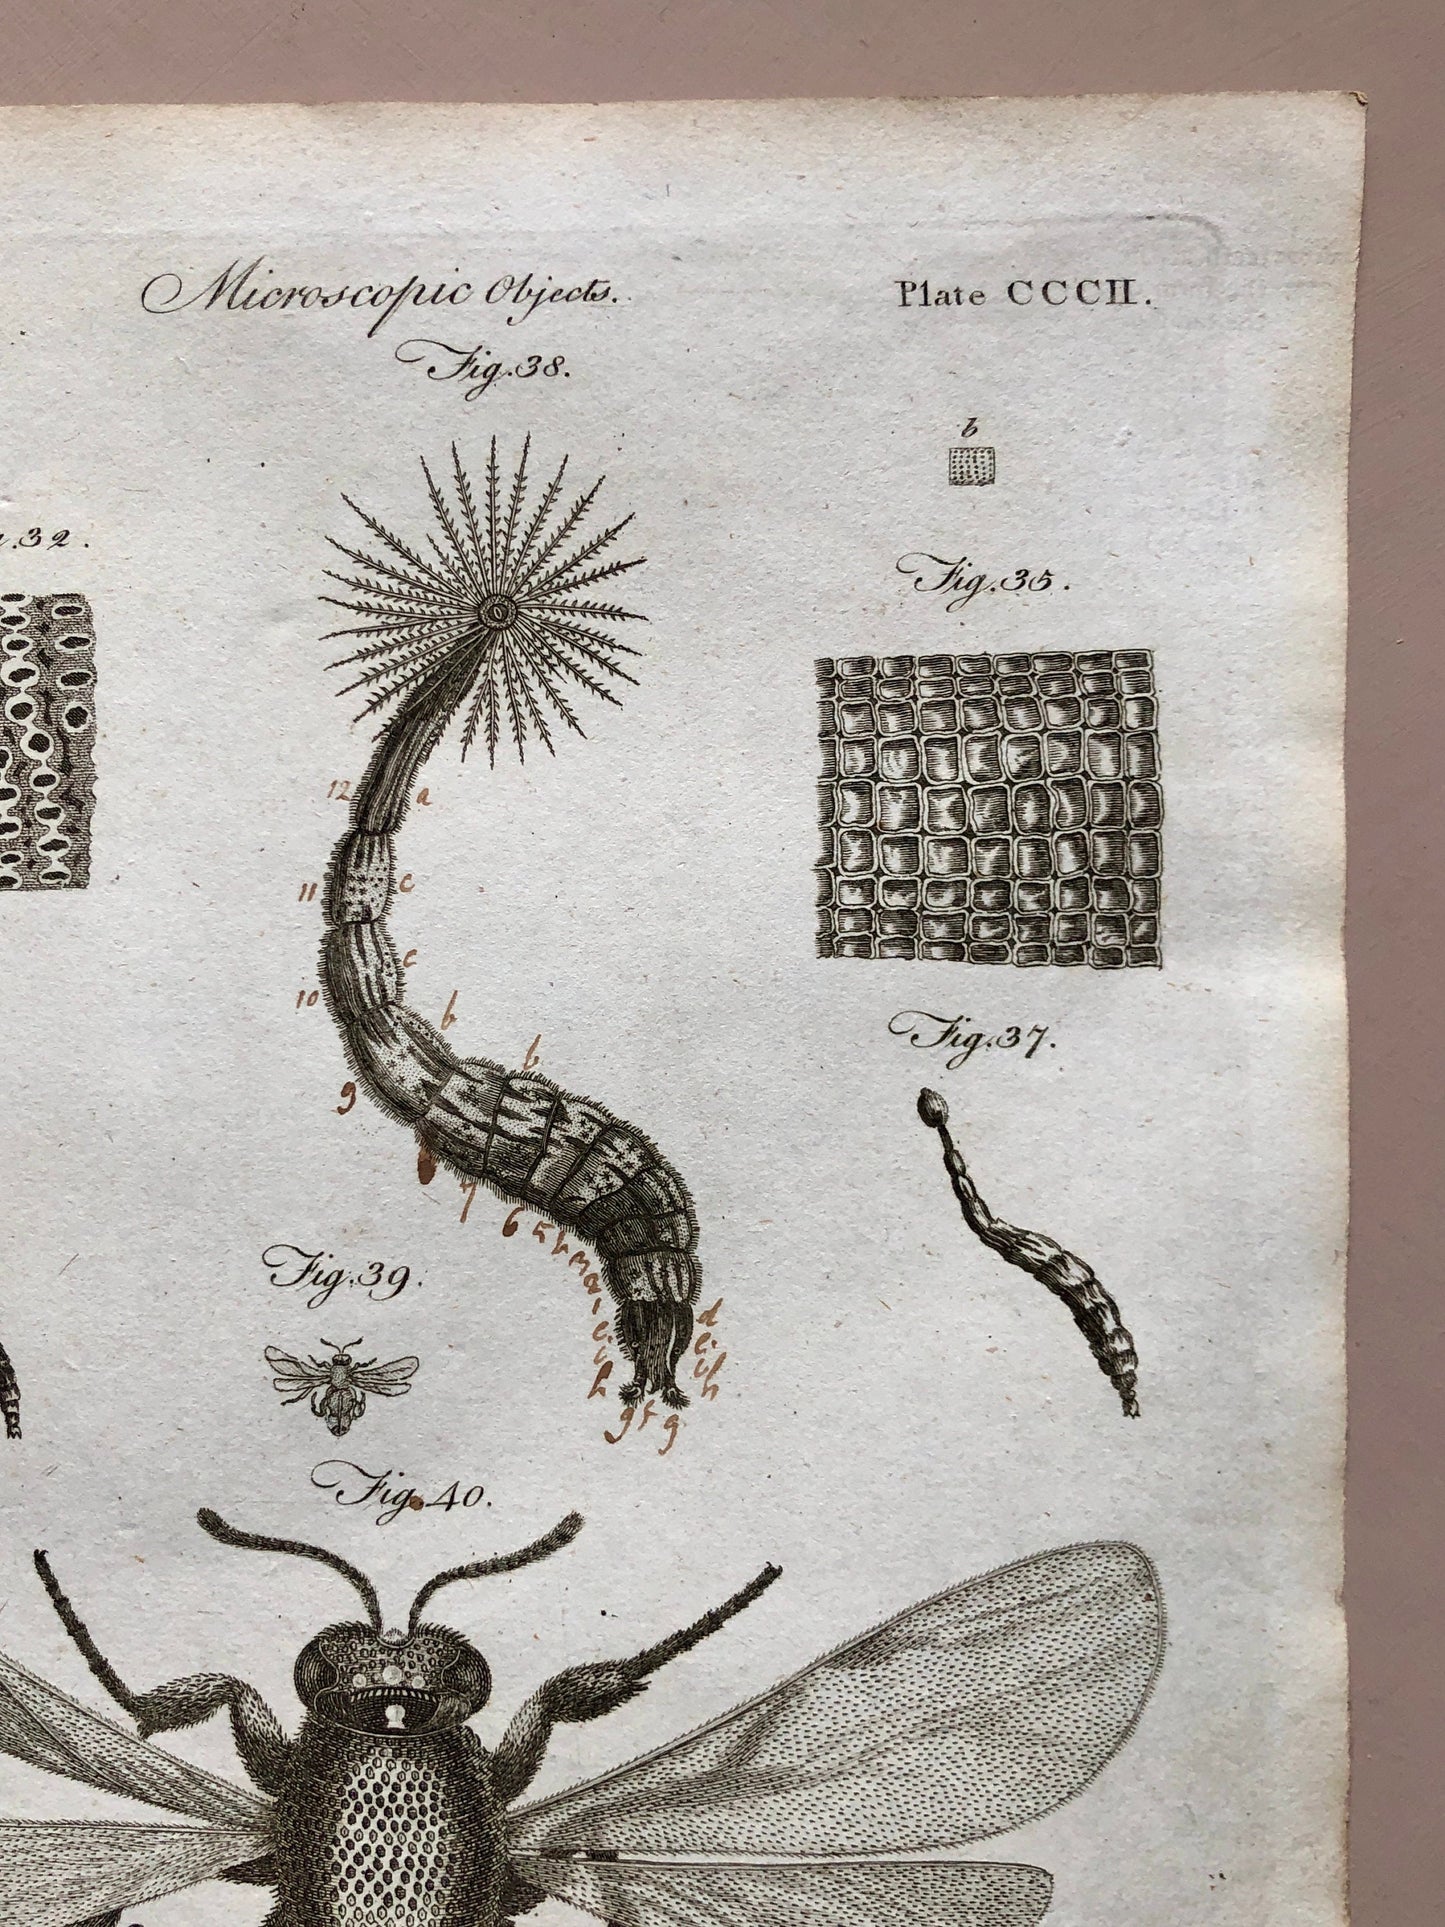 Microscopic Objects.
Plate CCCII.
Fig.38.
b
.32.
Fig.35.
12
a
11
c
c
10
b
Fig.37.
b
9
7
6
5
Fig.39.
3
2
1
d
e
e
i
i
h
h
g f g
Fig.40.